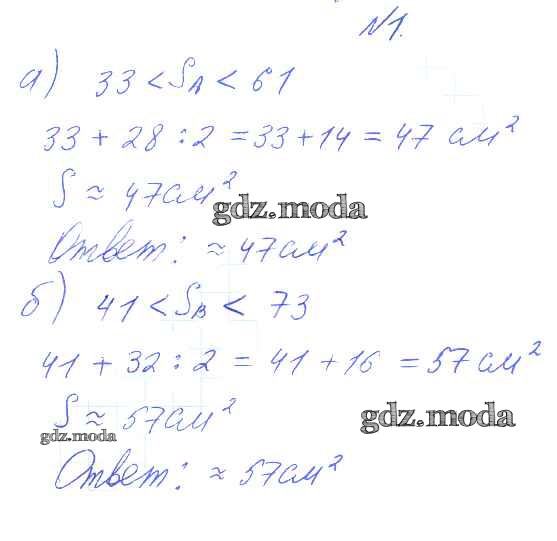 N1.
а) 33 < S_A < 61
33 + 28 : 2 = 33 + 14 = 47 см²
S ≈ 47 см²
gdz.moda
Ответ: ≈ 47 см²
б) 41 < S_B < 73
41 + 32 : 2 = 41 + 16 = 57 см²
S ≈ 57 см²
gdz.moda
gdz.moda
Ответ: ≈ 57 см²